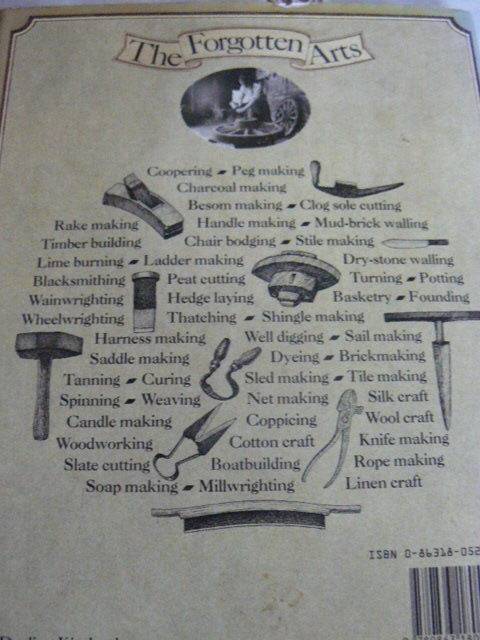 The Forgotten Arts
Coopering Peg making
Charcoal making
Besom making Clog sole cutting
Rake making Handle making Mud-brick walling
Timber building Chair bodging Stile making
Lime burning Ladder making Dry-stone walling
Blacksmithing Peat cutting Turning Potting
Wainwrighting Hedge laying Basketry Founding
Wheelwrighting Thatching Shingle making
Harness making Well digging Sail making
Saddle making Dyeing Brickmaking
Tanning Curing Sled making Tile making
Spinning Weaving Net making Silk craft
Candle making Coppicing Wool craft
Woodworking Cotton craft Knife making
Slate cutting Boatbuilding Rope making
Soap making Millwrighting Linen craft
ISBN 0-86318-052